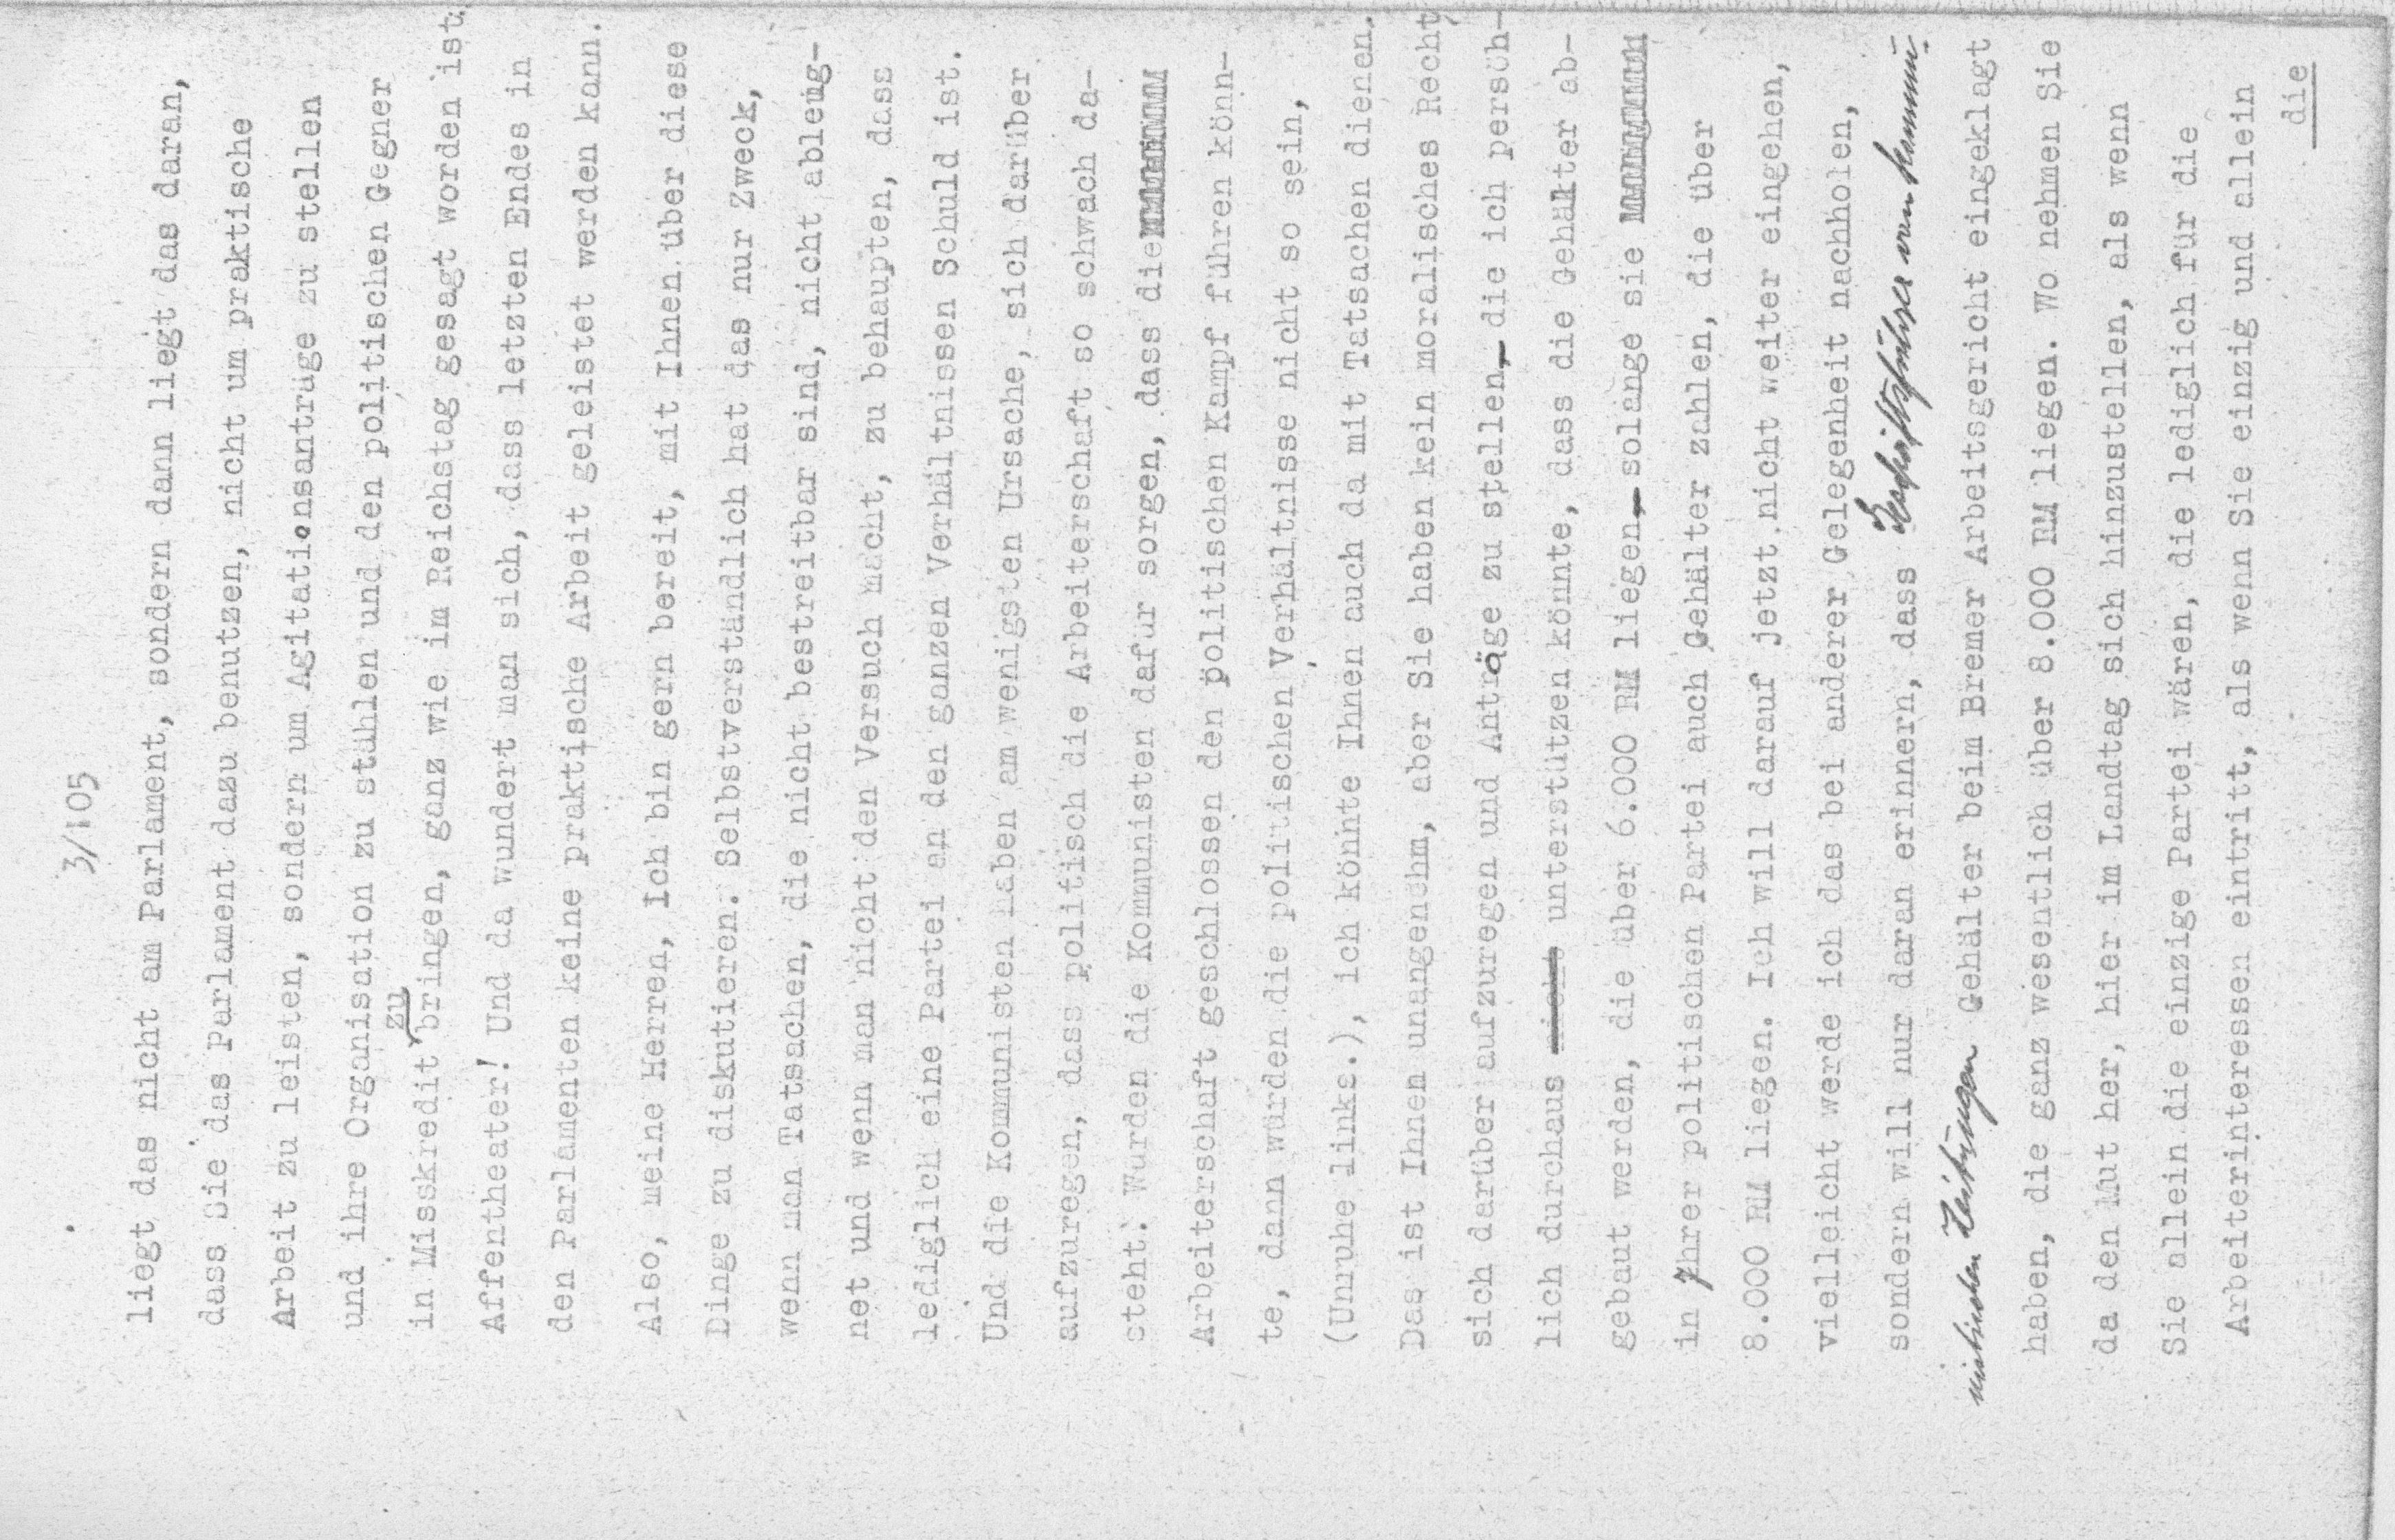 3/105
liegt das nicht am Parlament, sondern dann liegt das daran,
dass Sie das Parlament dazu benutzen, nicht um praktische
Arbeit zu leisten, sondern um Agitationsanträge zu stellen
und ihre Organisation zu stählen und den politischen Gegner
in Misskredit zu bringen, ganz wie im Reichstag gesagt worden ist:
Affentheater! Und da wundert man sich, dass letzten Endes in
den Parlamenten keine praktische Arbeit geleistet werden kann.
Also, meine Herren, ich bin gern bereit, mit Ihnen über diese
Dinge zu diskutieren. Selbstverständlich hat das nur Zweck,
wenn man Tatsachen, die nicht bestreitbar sind, nicht ableug-
net und wenn man nicht den Versuch macht, zu behaupten, dass
lediglich eine Partei an den ganzen Verhältnissen Schuld ist.
Und die Kommunisten haben am wenigsten Ursache, sich darüber
aufzuregen, dass politisch die Arbeiterschaft so schwach da-
steht. Würden die Kommunisten dafür sorgen, dass die
Arbeiterschaft geschlossen den politischen Kampf führen könn-
te, dann würden die politischen Verhältnisse nicht so sein,
(Unruhe links.), ich könnte Ihnen auch da mit Tatsachen dienen.
Das ist Ihnen unangenehm, aber Sie haben kein moralisches Recht,
sich darüber aufzuregen und Anträge zu stellen, - die ich persön-
lich durchaus nicht unterstützen könnte, dass die Gehälter ab-
gebaut werden, die über 6.000 RM liegen, - solange sie
in Ihrer politischen Partei auch Gehälter zahlen, die über
8.000 RM liegen. Ich will darauf jetzt nicht weiter eingehen,
vielleicht werde ich das bei anderer Gelegenheit nachholen,
sondern will nur daran erinnern, dass Geschäftsführer von kommu-
nistischen Zeitungen Gehälter beim Bremer Arbeitsgericht eingeklagt
haben, die ganz wesentlich über 8.000 RM liegen. Wo nehmen Sie
da den Mut her, hier im Landtag sich hinzustellen, als wenn
Sie allein die einzige Partei wären, die lediglich für die
Arbeiterinteressen eintritt, als wenn Sie einzig und allein
die